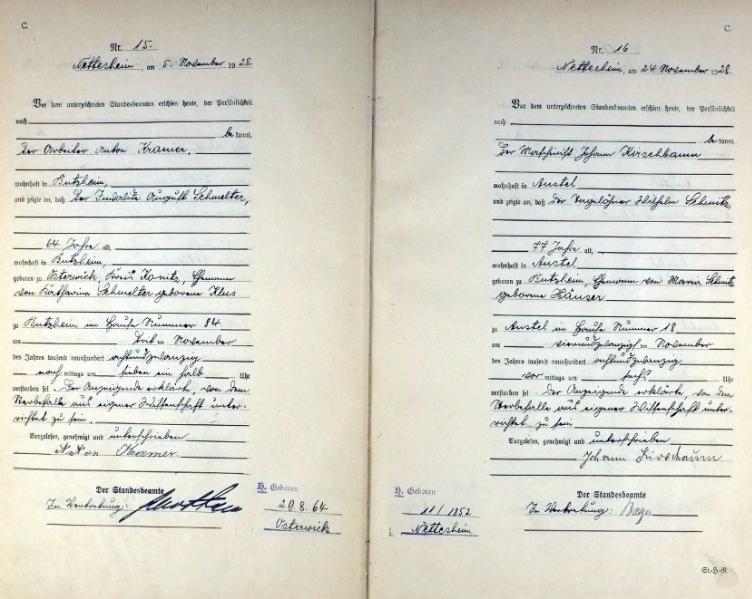 C
Nr. 15.
Nettesheim, am 5. November 1928.
Vor dem unterzeichneten Standesbeamten erschien heute, der Persönlichkeit
nach
be kannt,
der Arbeiter Anton Kramer,
wohnhaft in Butzheim,
und zeigte an, daß der Invalide August Schmelter,
64 Jahre alt,
wohnhaft in Butzheim,
geboren zu Osterwick, Kreis Konitz, Ehemann
von Katharina Schmelter geborene Kleis
zu Butzheim im Hause Nummer 84
am drei ten November
des Jahres tausend neunhundert achtundzwanzig
nach mittags um sieben ein halb Uhr
verstorben sei. Der Anzeigende erklärte, von dem
Sterbefalle aus eigener Wissenschaft unter-
richtet zu sein.
Vorgelesen, genehmigt und unterschrieben
Anton Kramer
Der Standesbeamte
In Vertretung:
H. Geboren
29.8.64
Osterwick
C
Nr. 16
Nettesheim, am 24 November 1928.
Vor dem unterzeichneten Standesbeamten erschien heute, der Persönlichkeit
nach
be kannt,
der Maschinist Johann Kirschbaum
wohnhaft in Anstel
und zeigte an, daß der Tagelöhner Wilhelm Schmitz
77 Jahre alt,
wohnhaft in Anstel
geboren zu Butzheim, Ehemann von Maria Schmitz
geborene Häuser
zu Anstel im Hause Nummer 18
am vierundzwanzigsten November
des Jahres tausend neunhundert achtundzwanzig
vor mittags um sechs Uhr
verstorben sei. Der Anzeigende erklärte von dem
Sterbefalle aus eigener Wissenschaft unter-
richtet zu sein
Vorgelesen, genehmigt und unterschrieben
Johann Kirschbaum
Der Standesbeamte
In Vertretung:
H. Geboren
11/1852
Nettesheim
St-H-R